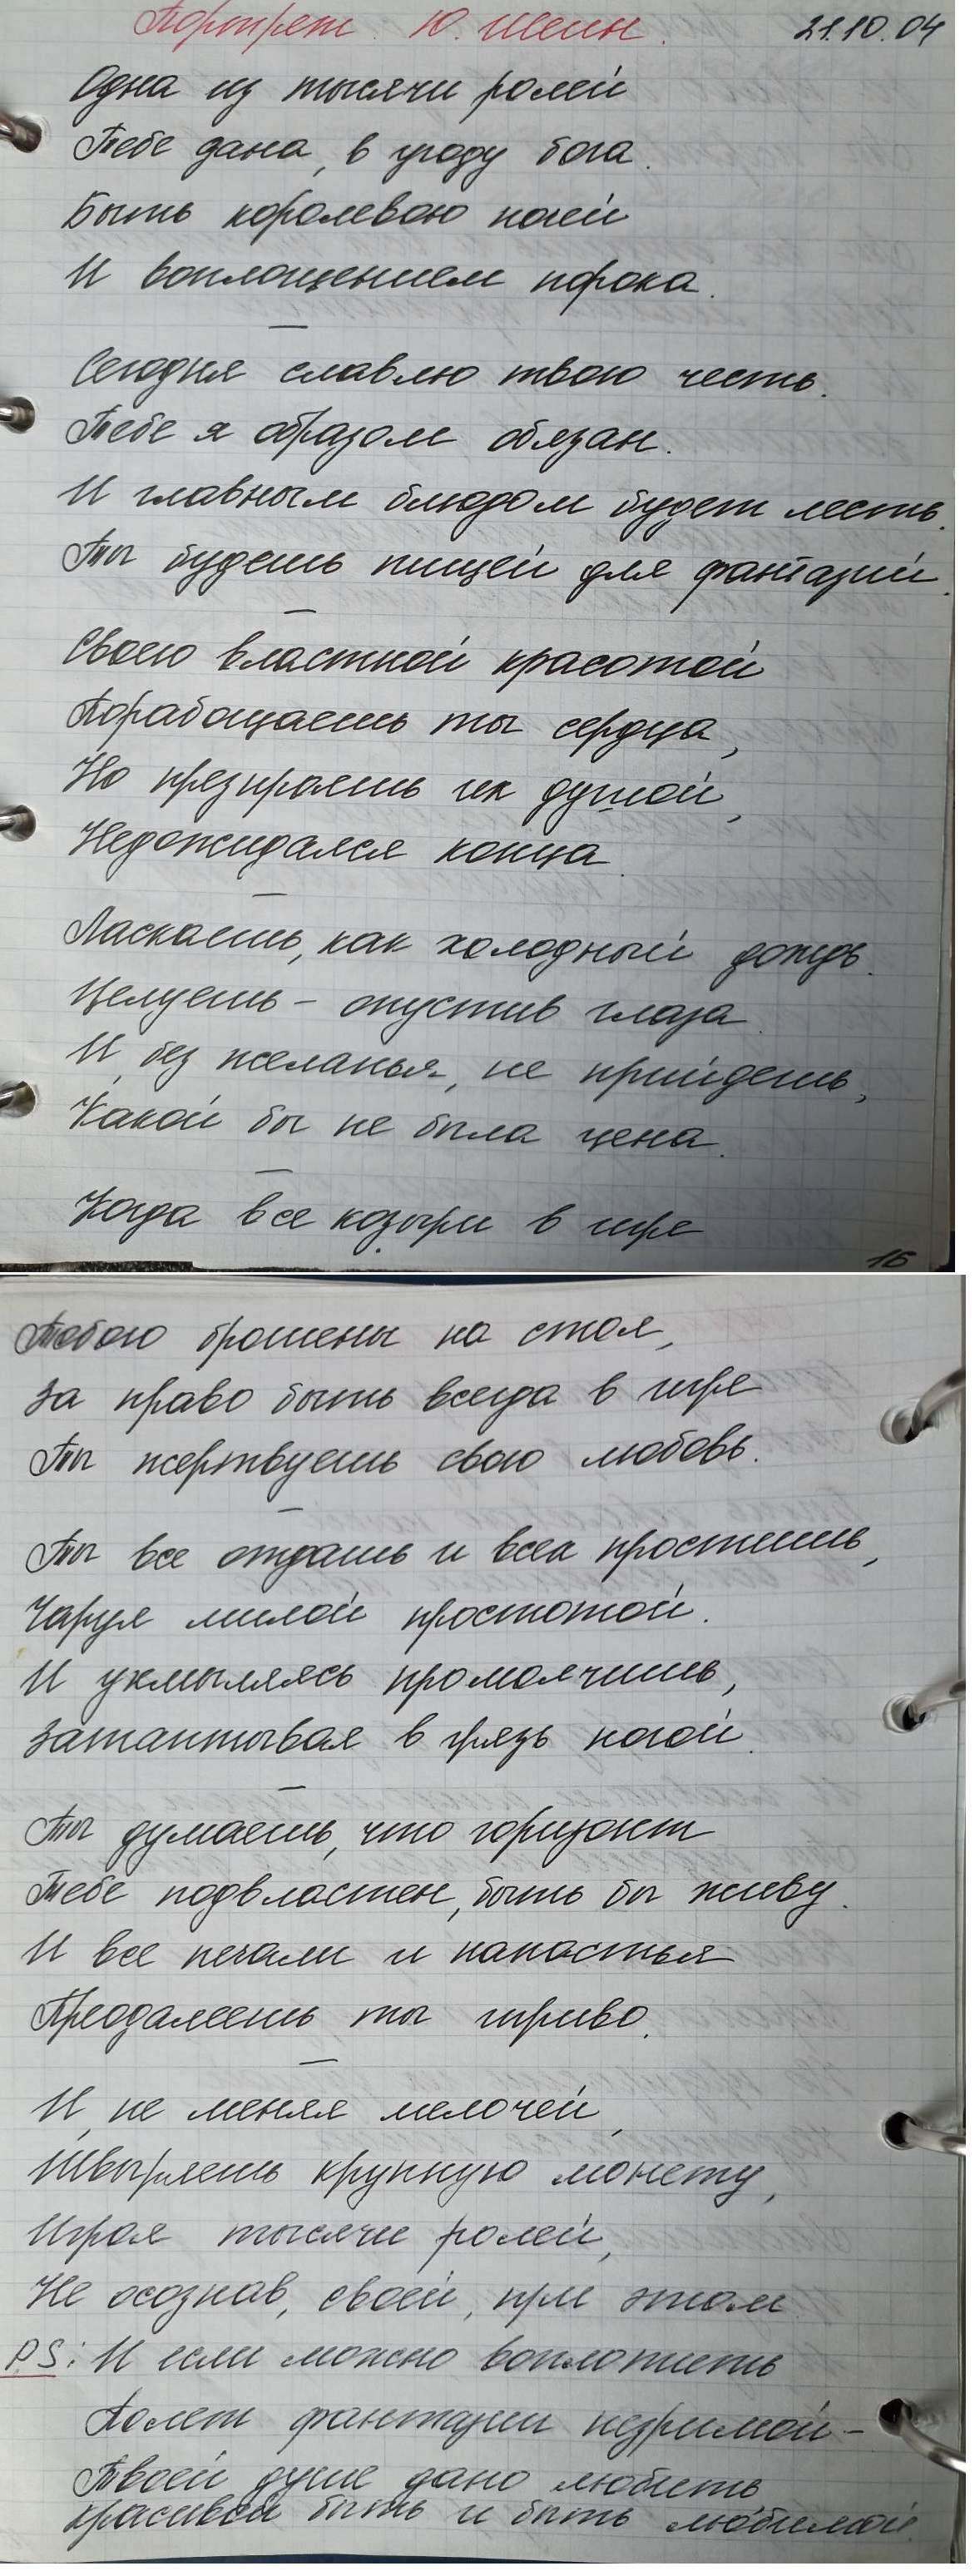 Портрет. Ю. Шеин. 21.10.04
Одна из тысячи ролей
Тебе дана, в угоду бога.
Быть королевою ночей
И воплощением порока.
Сегодня славлю твою честь.
Тебе я образом обязан.
И главным блюдом будет лесть.
Ты будешь пищей для фантазий.
Своею властной красотой
Порабощаешь ты сердца,
Но презираешь их душой,
Недожидаяся конца.
Ласкаешь, как холодный дождь.
Целуешь – опустив глаза.
И, без желанья, не прийдешь,
Какой бы не была цена.
Когда все козыри в игре
16
Тобою брошены на стол,
За право быть всегда в игре
Ты жертвуешь свою любовь.
Ты все отдашь и всех простишь,
Чаруя милой простотой.
И ухмыляясь промолчишь,
Затаптывая в грязь ногой.
Ты думаешь, что горизонт
Тебе подвластен, быть бы живу.
И все печали и напастья
Преодалеешь ты игриво.
И, не меняя мелочей,
Швыряешь крупную монету,
Играя тысячи ролей,
Не осознав, своей, при этом
PS: И если можно воплотить
Полет фантазии незримой –
Твоей душе дано любить
Красивой быть и быть любимой.